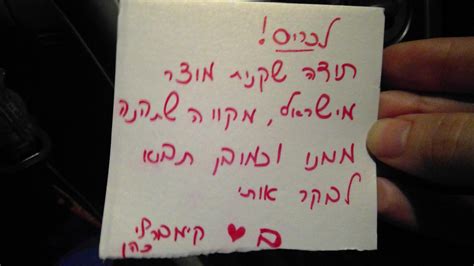 לכריס!
תודה שקנית מוצר
מישראל, מקווה שתהנה
ממנו וכמובן תבוא
לבקר אותי
קימברלי
כהן